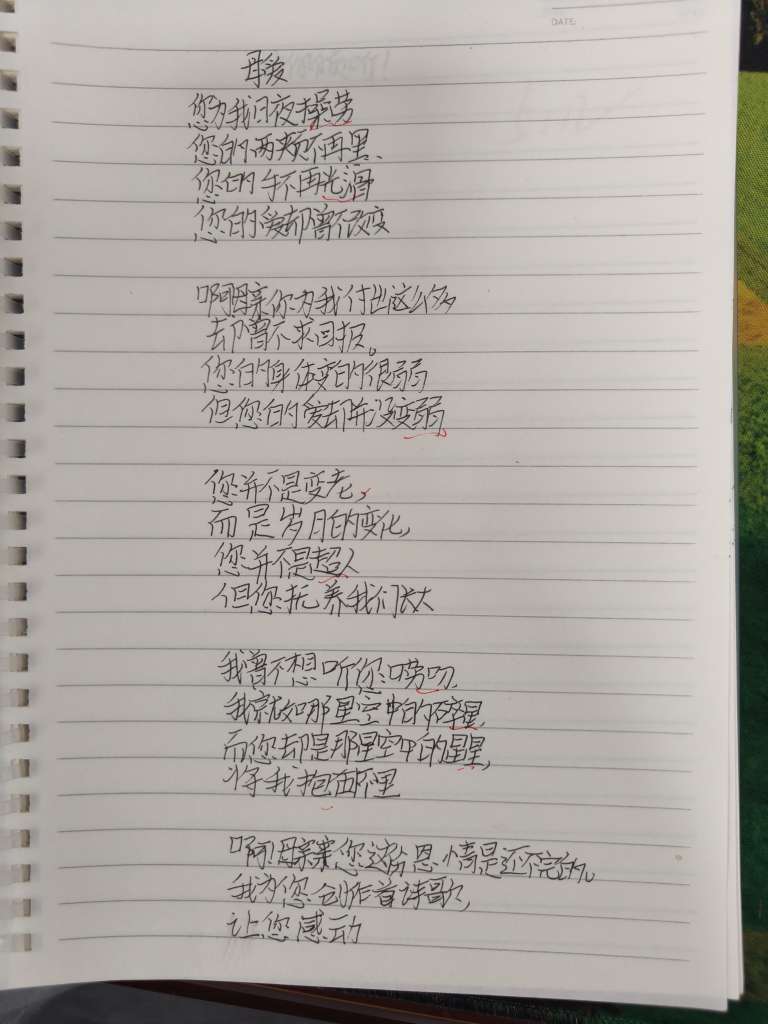 DATE
母爱
您为我日夜操劳
您的两颊不再黑、
您的手不再光滑
您的爱却曾不改变
啊母亲你为我付出这么多
却曾不求回报。
您的身体变的很弱
但您的爱却并没变弱
您并不是变老,
而是岁月的变化,
您并不是超人
但您抚养我们长大
我曾不想听您唠叨
我就如那星空中的碎星
而您却是那星空中的星星,
将我抱怀里
啊母亲您这份恩情是还不完的。
我为您创作首诗歌,
让您感动